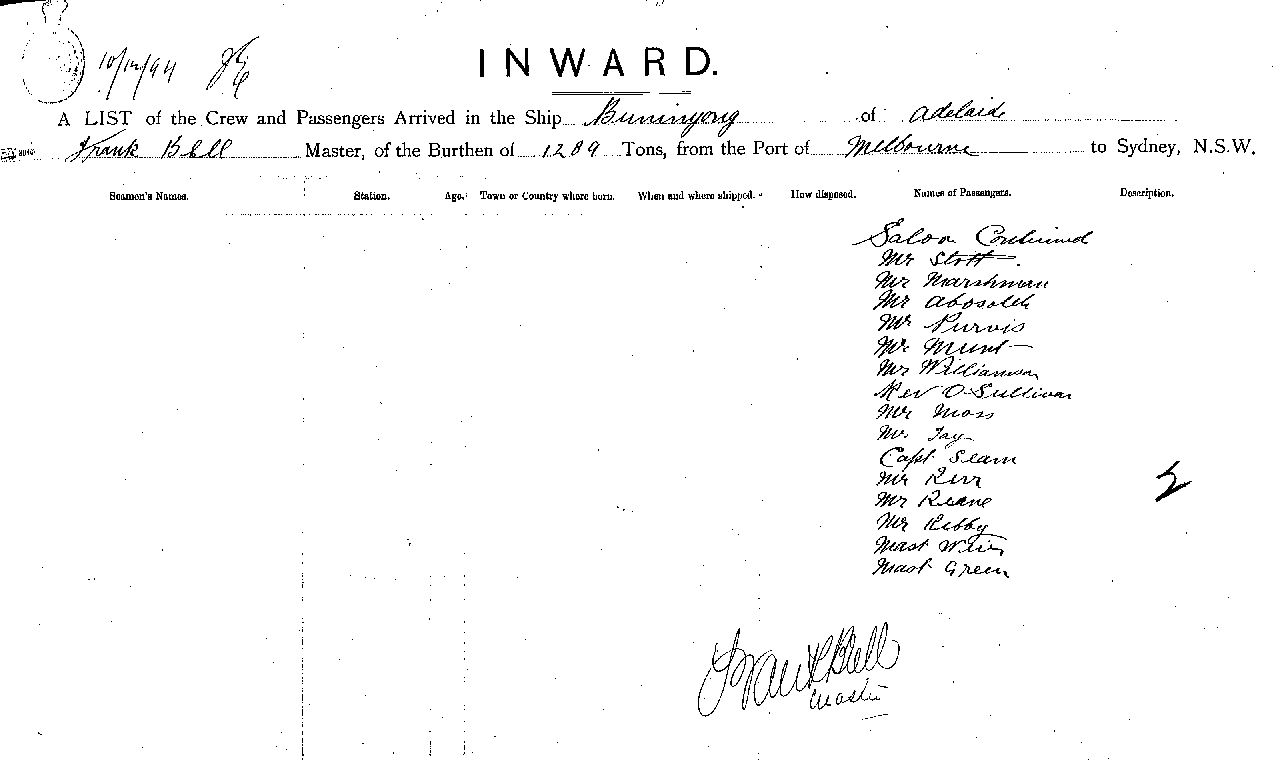 10/12/94
INWARD.
A LIST of the Crew and Passengers Arrived in the Ship Buninyong of Adelaide
Frank Bell Master, of the Burthen of 1209 Tons, from the Port of Melbourne to Sydney, N.S.W.
Seamen's Names. Station. Age. Town or Country where born. When and where shipped. How disposed. Names of Passengers. Description.
Saloon Continued
Mr Stott
Mr Marshman
Mr Abosolth
Mr Purvis
Mr Munt
Mr Williamson
Rev O Sullivan
Mr Moss
Mr Fay
Capt Seam
Mr Kerr
Mr Keane
Mr Kebby
Mast Weir
Mast Green
2
Frank Bell
Master